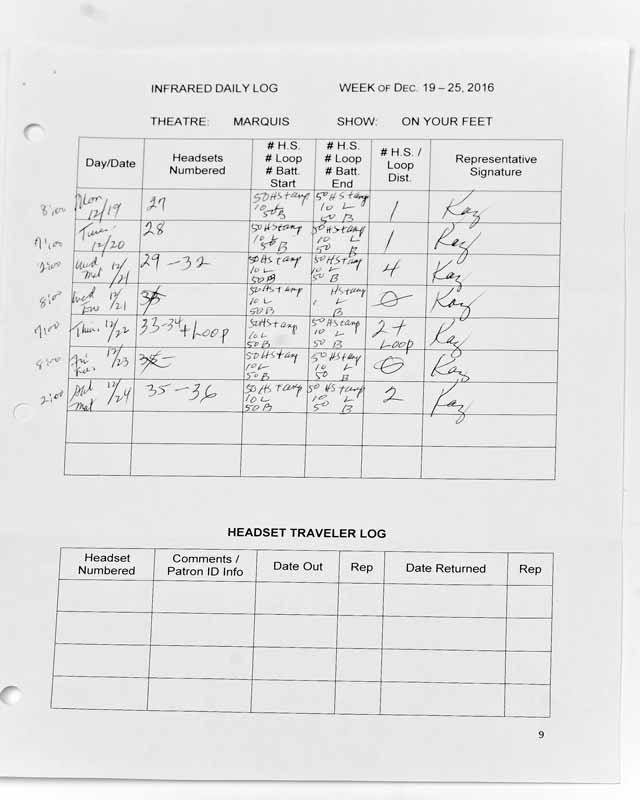 INFRARED DAILY LOG WEEK OF DEC. 19 – 25, 2016
THEATRE: MARQUIS SHOW: ON YOUR FEET
Day/Date
Headsets
Numbered
# H.S.
# Loop
# Batt.
Start
# H.S.
# Loop
# Batt.
End
# H.S. /
Loop
Dist.
Representative
Signature
8:00 Mon
12/19
27
50 HS + amp
10 L
50 B
50 HS + amp
10 L
50 B
1
Kaz
7:00 Tues
12/20
28
50 HS + amp
10 L
50 B
50 HS + amp
10 L
50 B
1
Kaz
2:00 Wed
Mat 12/21
29 – 32
50 HS + amp
10 L
50 B
50 HS + amp
10 L
50 B
4
Kaz
8:00 Wed
Eve 12/21
50 HS + amp
10 L
50 B
HS + amp
L
B
0
Kaz
7:00 Thurs. 12/22
33-34 + Loop
50 HS + amp
10 L
50 B
50 HS + amp
10 L
50 B
2 +
Loop
Kaz
8:00 Fri
Eve. 12/23
50 HS + amp
10 L
50 B
50 HS + amp
10 L
50 B
0
Kaz
2:00 Sat
Mat 12/24
35 – 36
50 HS + amp
10 L
50 B
50 HS + amp
10 L
50 B
2
Kaz
HEADSET TRAVELER LOG
Headset
Numbered
Comments /
Patron ID Info
Date Out
Rep
Date Returned
Rep
9